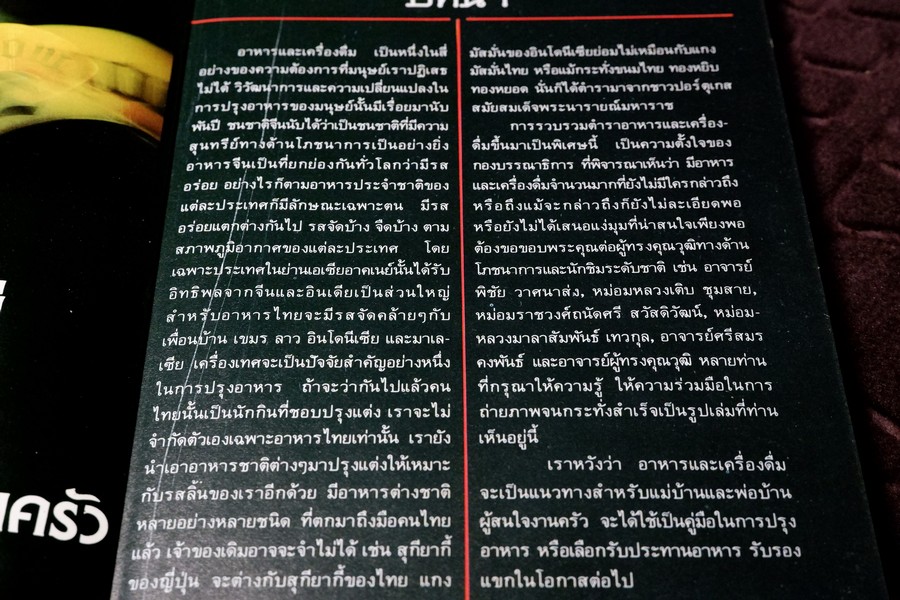 บทนำ
อาหารและเครื่องดื่ม เป็นหนึ่งในสี่
อย่างของความต้องการที่มนุษย์เราปฏิเสธ
ไม่ได้ วิวัฒนาการและความเปลี่ยนแปลงใน
การปรุงอาหารของมนุษย์นั้นมีเรื่อยมานับ
พันปี ชนชาติจีนนับได้ว่าเป็นชนชาติที่มีความ
สุนทรีย์ทางด้านโภชนาการเป็นอย่างยิ่ง
อาหารจีนเป็นที่ยกย่องกันทั่วโลกว่ามีรส
อร่อย อย่างไรก็ตามอาหารประจำชาติของ
แต่ละประเทศก็มีลักษณะเฉพาะตน มีรส
อร่อยแตกต่างกันไป รสจัดบ้าง จืดบ้าง ตาม
สภาพภูมิอากาศของแต่ละประเทศ โดย
เฉพาะประเทศในย่านเอเซียอาคเนย์นั้นได้รับ
อิทธิพลจากจีนและอินเดียเป็นส่วนใหญ่
สำหรับอาหารไทยจะมีรสจัดคล้ายๆกับ
เพื่อนบ้าน เขมร ลาว อินโดนีเซีย และมาเล-
เซีย เครื่องเทศจะเป็นปัจจัยสำคัญอย่างหนึ่ง
ในการปรุงอาหาร ถ้าจะว่ากันไปแล้วคน
ไทยนั้นเป็นนักกินที่ชอบปรุงแต่ง เราจะไม่
จำกัดตัวเองเฉพาะอาหารไทยเท่านั้น เรายัง
นำเอาอาหารชาติต่างๆมาปรุงแต่งให้เหมาะ
กับรสลิ้นของเราอีกด้วย มีอาหารต่างชาติ
หลายอย่างหลายชนิด ที่ตกมาถึงมือคนไทย
แล้ว เจ้าของเดิมอาจจะจำไม่ได้ เช่น สุกียากี้
ของญี่ปุ่น จะต่างกับสุกียากี้ของไทย แกง
มัสมั่นของอินโดนีเซียย่อมไม่เหมือนกับแกง
มัสมั่นไทย หรือแม้กระทั่งขนมไทย ทองหยิบ
ทองหยอด นั่นก็ได้ตำรามาจากชาวปอร์ตุเกส
สมัยสมเด็จพระนารายณ์มหาราช
การรวบรวมตำราอาหารและเครื่อง-
ดื่มขึ้นมาเป็นพิเศษนี้ เป็นความตั้งใจของ
กองบรรณาธิการ ที่พิจารณาเห็นว่า มีอาหาร
และเครื่องดื่มจำนวนมากที่ยังไม่มีใครกล่าวถึง
หรือถึงแม้จะกล่าวถึงก็ยังไม่ละเอียดพอ
หรือยังไม่ได้เสนอแง่มุมที่น่าสนใจเพียงพอ
ต้องขอขอบพระคุณต่อผู้ทรงคุณวุฒิทางด้าน
โภชนาการและนักชิมระดับชาติ เช่น อาจารย์
พิชัย วาศนาส่ง, หม่อมหลวงเติบ ชุมสาย,
หม่อมราชวงศ์ถนัดศรี สวัสดิวัฒน์, หม่อม-
หลวงมาลาสัมพันธ์ เทวกุล, อาจารย์ศรีสมร
คงพันธ์ และอาจารย์ผู้ทรงคุณวุฒิ หลายท่าน
ที่กรุณาให้ความรู้ ให้ความร่วมมือในการ
ถ่ายภาพจนกระทั่งสำเร็จเป็นรูปเล่มที่ท่าน
เห็นอยู่นี้
เราหวังว่า อาหารและเครื่องดื่ม
จะเป็นแนวทางสำหรับแม่บ้านและพ่อบ้าน
ผู้สนใจงานครัว จะได้ใช้เป็นคู่มือในการปรุง
อาหาร หรือเลือกรับประทานอาหาร รับรอง
แขกในโอกาสต่อไป